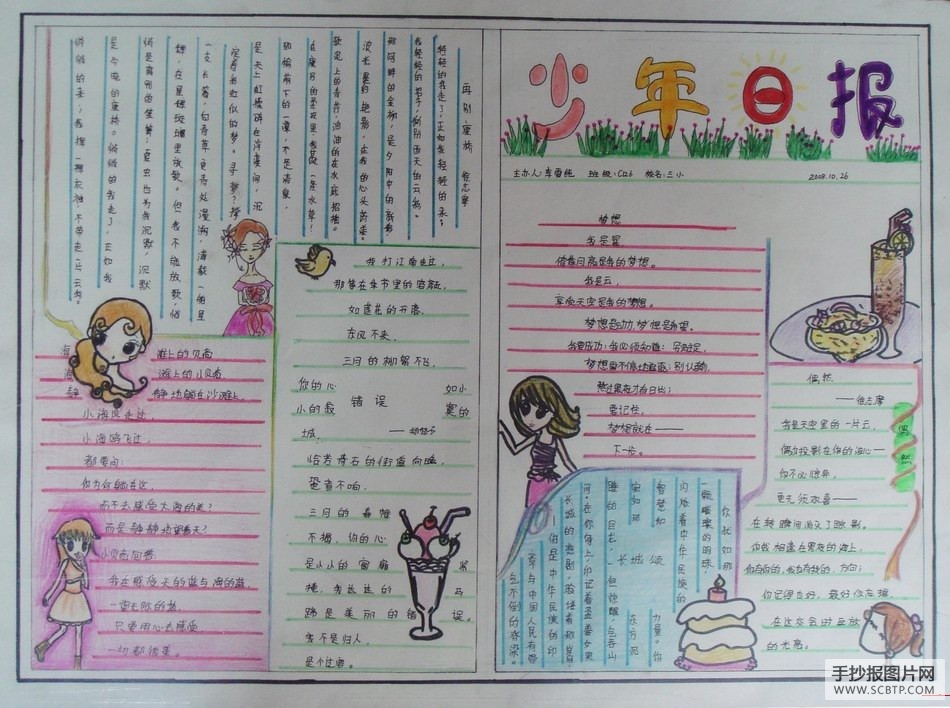 少年日报
主办人:李雪纯 班级:C126 校名:三小 2008.10.26
梦想
我是星,
倚着月亮是我的梦想。
我是云,
享向天空是我的梦想。
梦想是动力,梦想是希望。
要记住,
梦想就在——
下一步。
偶然
——徐志摩
我是天空里的一片云,
偶尔投影在你的波心——
你不必惊异,
更无须欢喜——
在转瞬间消灭了踪影。
你我相逢在黑夜的海上,
你有你的,我有我的,方向;
你记得也好,最好你忘掉
在这交会时互放
的光亮。
偶然
长城颂
你就如那
一颗璀璨的明珠,
闪烁着中华民族的
智慧和
力量。你
东方巨
再别康桥 徐志摩
轻轻的我走了,正如我轻轻的来;
我轻轻的招手,作别西天的云彩。
那河畔的金柳,是夕阳中的新娘;
波光里的艳影,在我的心头荡漾。
软泥上的青荇,油油的在水底招摇;
在康河的柔波里,我甘做一条水草!
那榆荫下的一潭,不是清泉,
是天上虹;揉碎在浮藻间,沉
淀着彩虹似的梦。寻梦?撑
一支长篙,向青草更青处漫溯,满载一船星
辉,在星辉斑斓里放歌。但我不能放歌,悄
悄是离别的笙箫;夏虫也为我沉默,沉默
是今晚的康桥。悄悄的我走了,正如我
悄悄的来;我挥一挥衣袖,不带走一片云彩。
我打江南走过,
那等在季节里的容颜,
如莲花的开落。
东风不来,
三月的柳絮不飞
你的心 如小
小的寂 错误 寞的
城,
恰若青石的街道向晚,
跫音不响,
三月的春帷
不揭,你的心
是小小的窗扉 紧
掩,我达达的 马
蹄是美丽的错 误。
我不是归人
是个过客。
海 滩上的贝壳
海 滩上的小贝壳
静 静地躺在沙滩上。
小海风走过,
小海鸥飞过,
都要问:
你为何躺在这,
而不去感受大海的美?
而是静静地望着天?
小贝壳回答:
我在感悟天的蓝与海的蓝,
一望无际的蓝,
只要用心去感悟
一切都很美。
手抄报图片网
WWW.SCBTP.COM